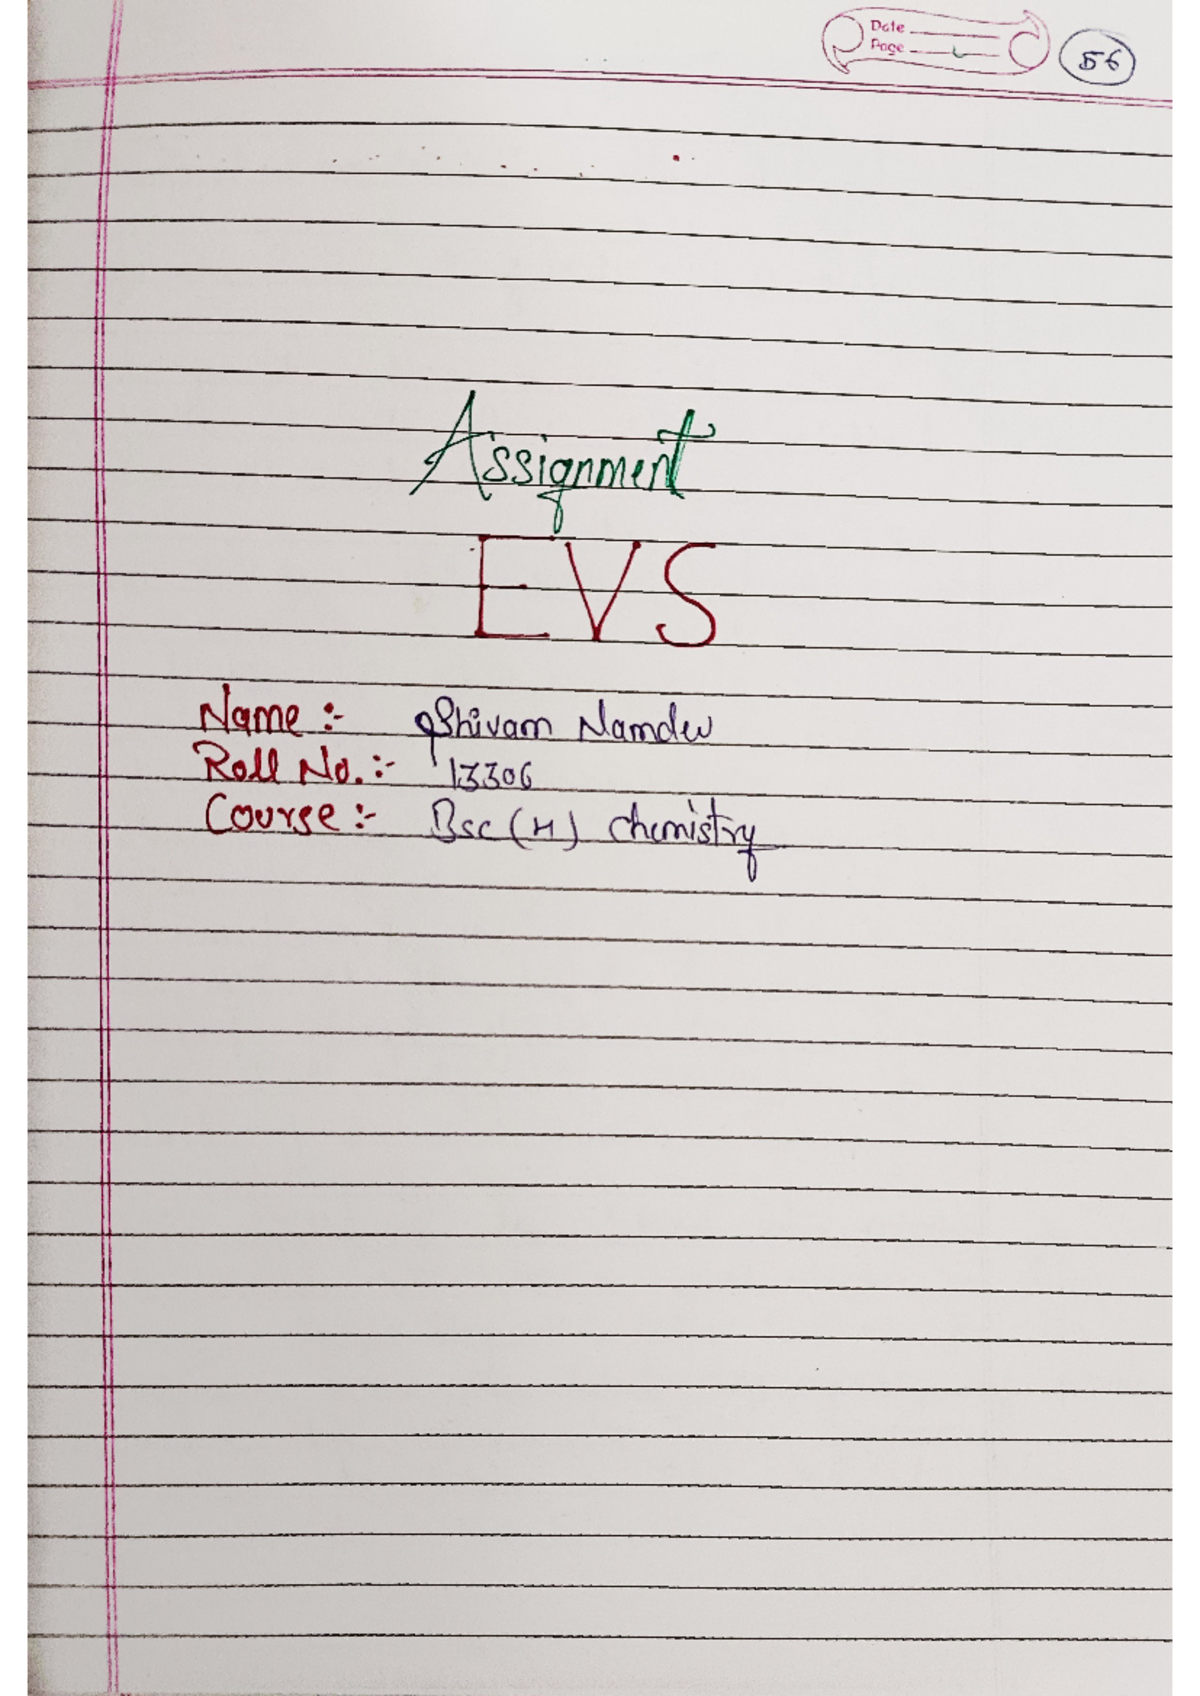 Date
Page
56
Assignment
EVS
Name :- Shivam Namdev
Roll No. :- 13306
Course :- Bsc (H) Chemistry